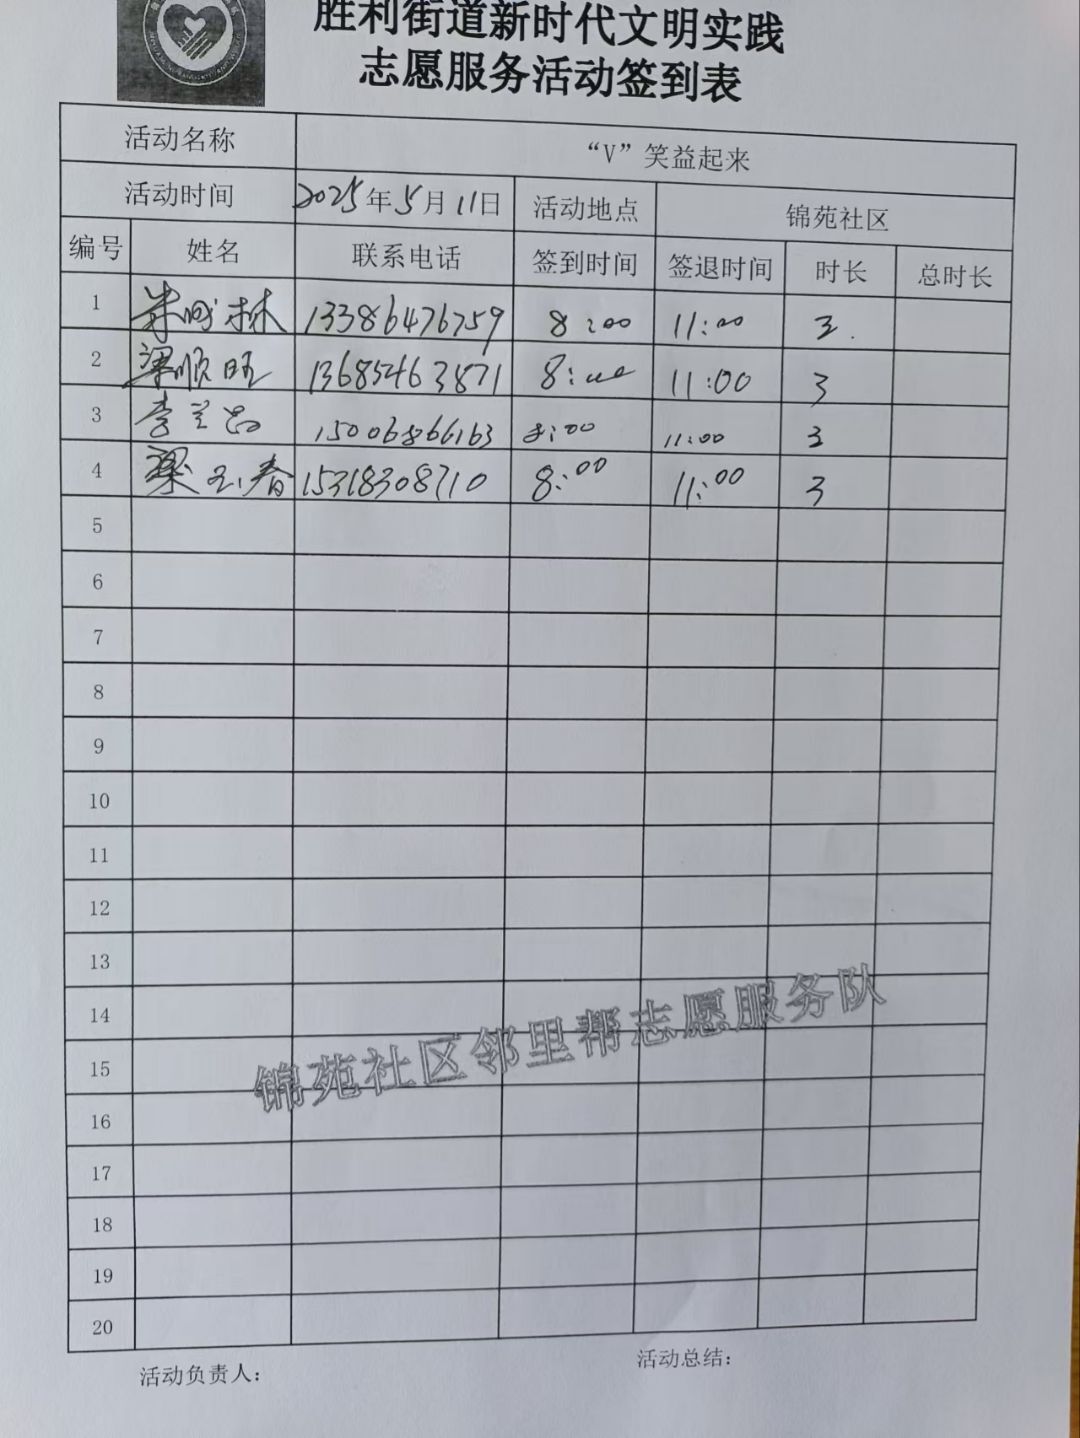 胜利街道新时代文明实践
志愿服务活动签到表
活动名称 “V”笑益起来
活动时间 2025年5月11日 活动地点 锦苑社区
编号 姓名 联系电话 签到时间 签退时间 时长 总时长
1 林 13386476759 8:00 11:00 3.
2 梁顺旺 13685463871 8:00 11:00 3
3 李兰 15006866163 8:00 11:00 3
4 梁玉春 15318308710 8:00 11:00 3
5
6
7
8
9
10
11
12
13
14
15
16
17
18
19
20
锦苑社区邻里帮志愿服务队
活动负责人: 活动总结: